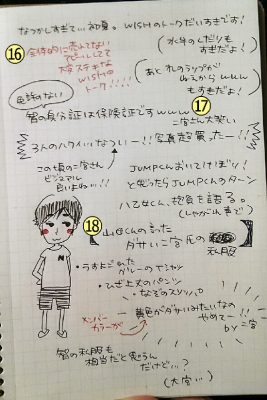 なつかしすぎて…初夏。WISHのトークだいすきです!
16
全体的に売れてない
アピールしてて
大変ステキな
WISHの
トーク!!!!
(水牛のくだりも
すきだよ!)
(あとれのラップが
ねえから www
もすきだよ!)
免許のない
智の身分証は保険証ですwww
17
二宮さん大笑い
3人のハワイいなつい~!!写真超買ったー!!
この頃の二宮さん
ビジュアル
良いよね…!!
JUMPくんおいてけぼり!
と思ったらJUMPくんのターン
八乙女くん、抱負を語る。
(しゃがれ声で)
18
山田くんの言った
ダサい二宮氏の
私服
・うすよごれた
グレーのTシャツ
・ひざ上丈のパンツ
・なぞのスリッパ
黄色がダサいみたいなの
やめてー!!
by 二宮
メンバー
カラーが
智の私服も
相当だと思うん
だけど…?
(大宮…)